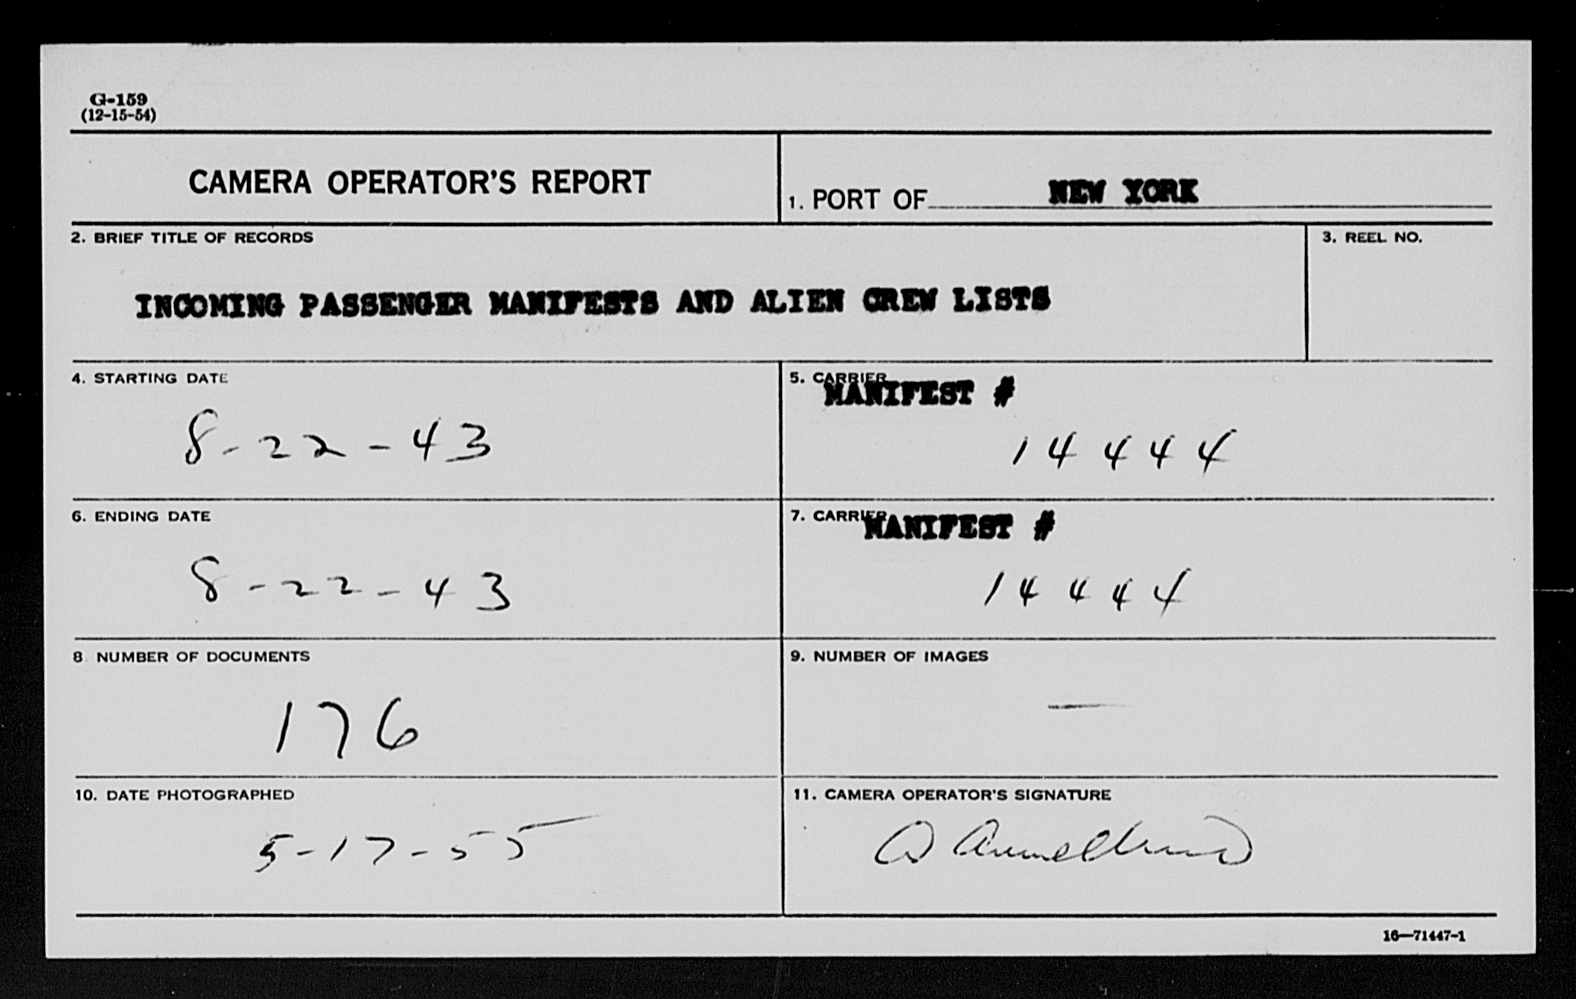 G-159
(12-15-54)
CAMERA OPERATOR'S REPORT
1. PORT OF NEW YORK
2. BRIEF TITLE OF RECORDS
INCOMING PASSENGER MANIFESTS AND ALIEN CREW LISTS
3. REEL NO.
4. STARTING DATE
8-22-43
5. CARRIER
MANIFEST #
14444
6. ENDING DATE
8-22-43
7. CARRIER
MANIFEST #
14444
8 NUMBER OF DOCUMENTS
176
9. NUMBER OF IMAGES
—
10. DATE PHOTOGRAPHED
5-17-55
11. CAMERA OPERATOR'S SIGNATURE
16—71447-1